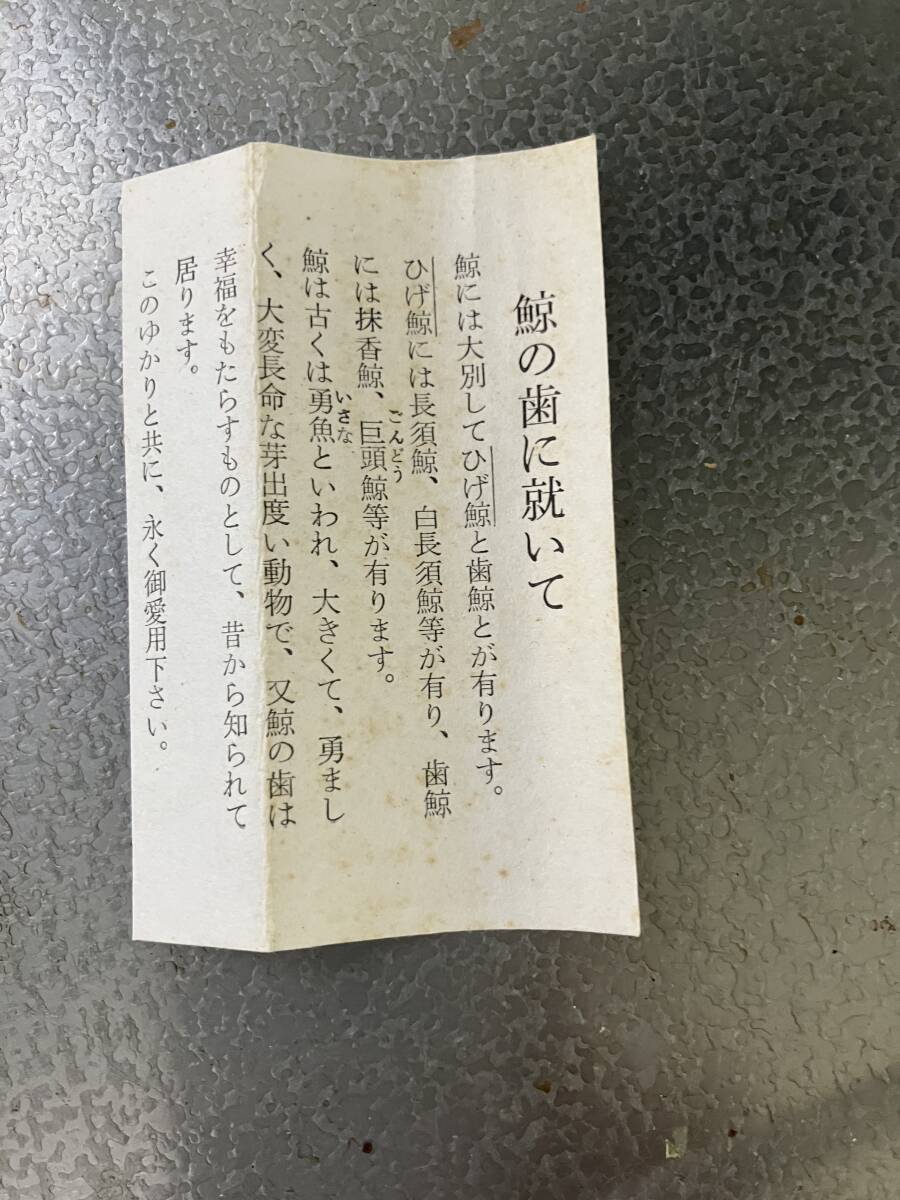 鯨の歯に就いて
鯨には大別してひげ鯨と歯鯨とが有ります。
ひげ鯨には長須鯨、白長須鯨等が有り、歯鯨
には抹香鯨、巨頭鯨等が有ります。
ごんどう
鯨は古くは勇魚といわれ、大きくて、勇まし
いさな
く、大変長命な芽出度い動物で、又鯨の歯は
幸福をもたらすものとして、昔から知られて
居ります。
このゆかりと共に、永く御愛用下さい。